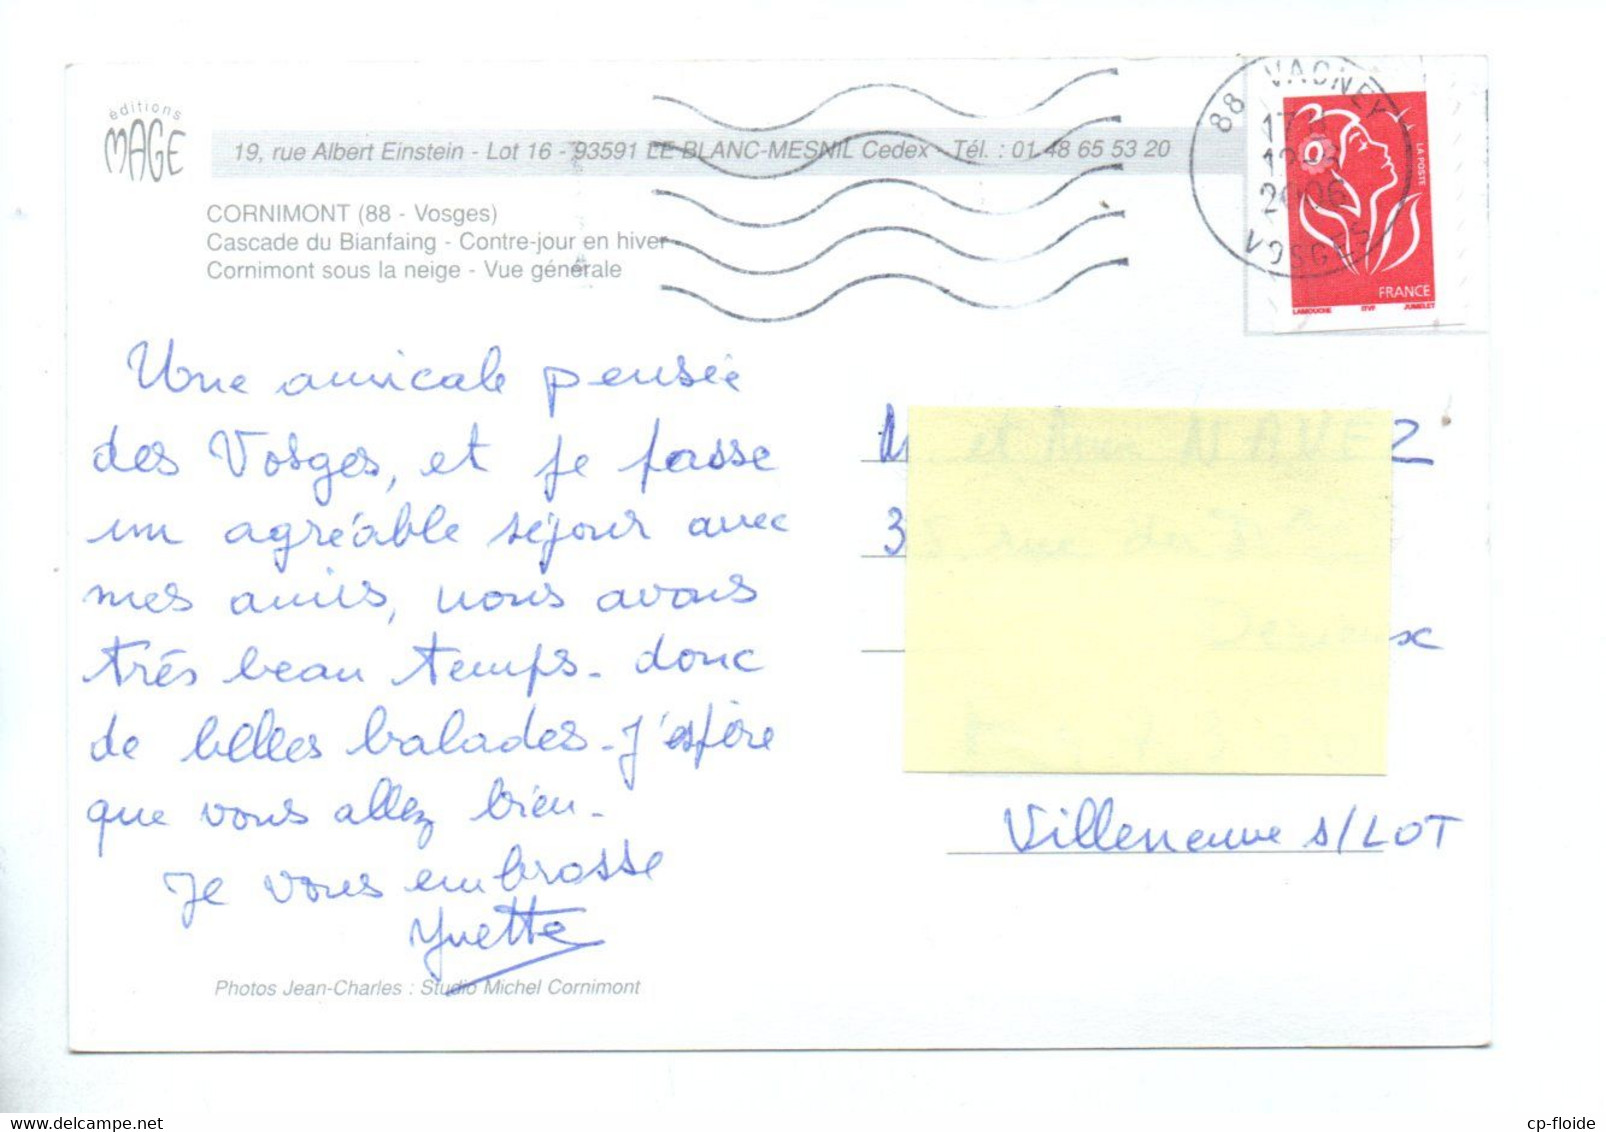 éditions
MAGE
19, rue Albert Einstein - Lot 16 - 93591 LE BLANC-MESNIL Cedex - Tél. : 01 48 65 53 20
CORNIMONT (88 - Vosges)
Cascade du Bianfaing - Contre-jour en hiver
Cornimont sous la neige - Vue générale
88 VAGNEY
2006
VOSGES
LA POSTE
FRANCE
LAMOUCHE ITVF JUMELET
Une amicale pensée
des Vosges, et je passe
un agréable séjour avec
mes amis, nous avons
très beau temps - donc
de belles balades - J'espère
que vous allez bien -
Je vous embrasse
Yvette
3
Villeneuve s/LOT
Photos Jean-Charles : Studio Michel Cornimont
cp-floide